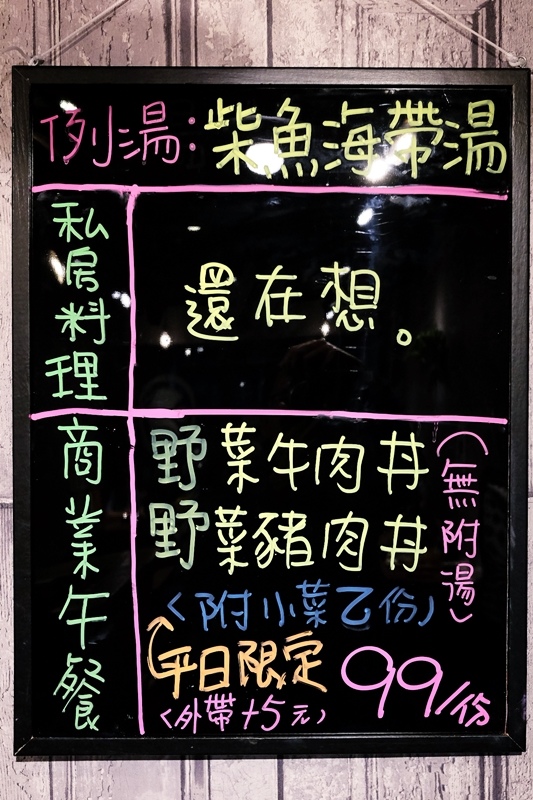 例湯：柴魚海帶湯
私房料理
還在想。
商業午餐
野菜牛肉丼
野菜豬肉丼
（無附湯）
〈附小菜乙份〉
平日限定
99/份
〈外帶+5元〉